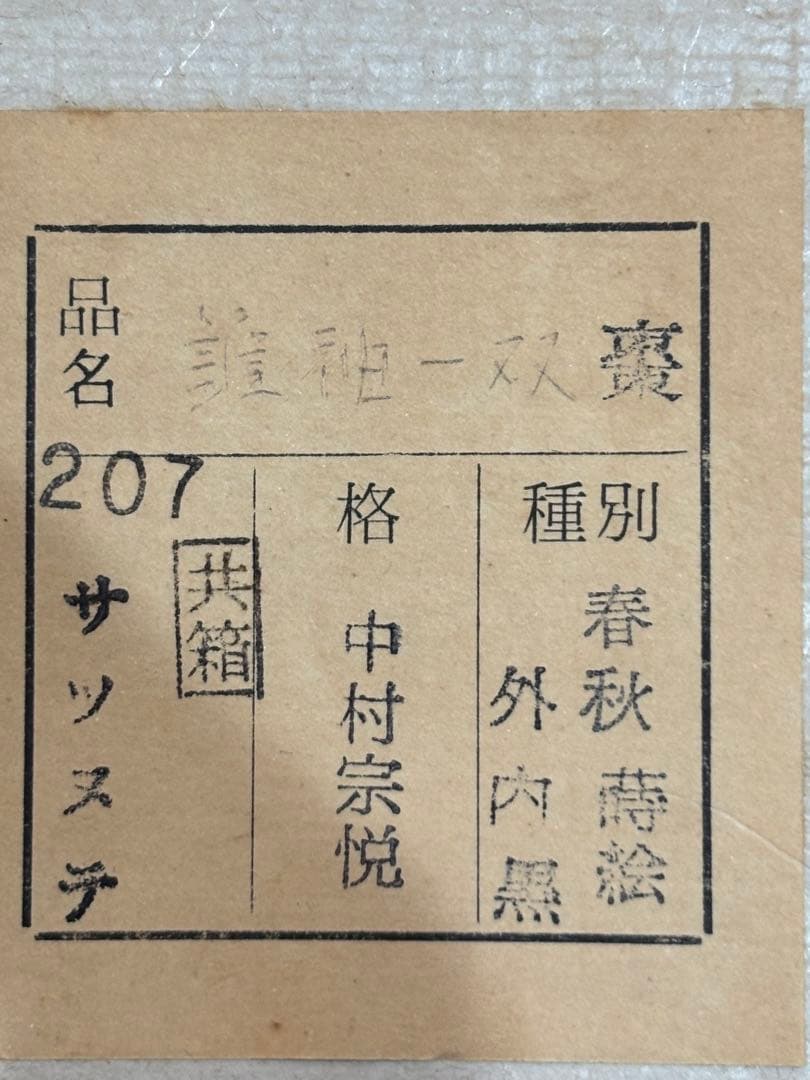 品名
誰袖一双 棗
種別
春秋蒔絵
外内黒
格
中村宗悦
207
共箱
サツステ